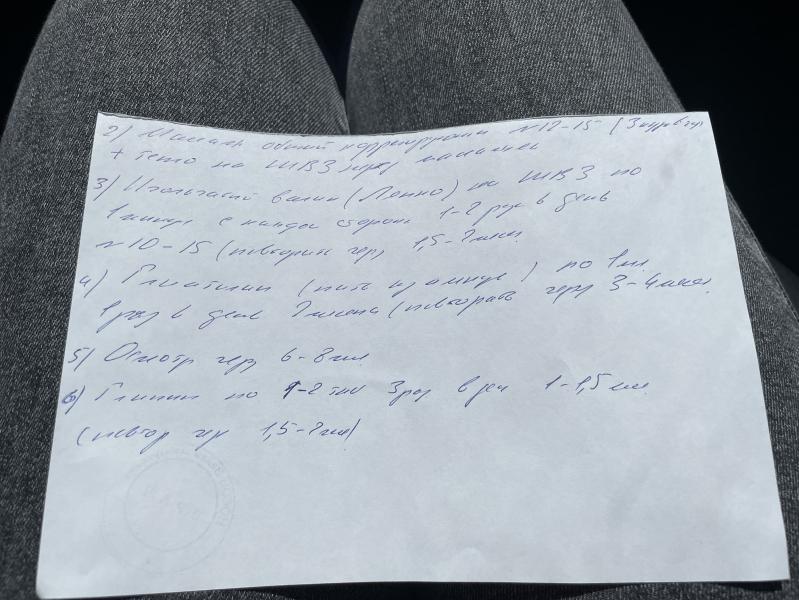 2) Массаж общий корригирующий №12-15 (3 курса в год)
+ тепло на ШВЗ перед массажем
3) Игольчатый валик (Ляпко) на ШВЗ по
1 минуте с каждой стороны 1-2 раза в день
№10-15 (повторить через 1,5-2 мес.
4) Глиатилин (пить из ампул) по 1 мл.
1 раз в день 2 месяца (повторять через 3-4 мес.
5) Осмотр через 6-8 мес.
6) Глицин по 1-2 таб 3 раз в ден 1-1,5 мес.
(повтор чер 1,5-2 мес)